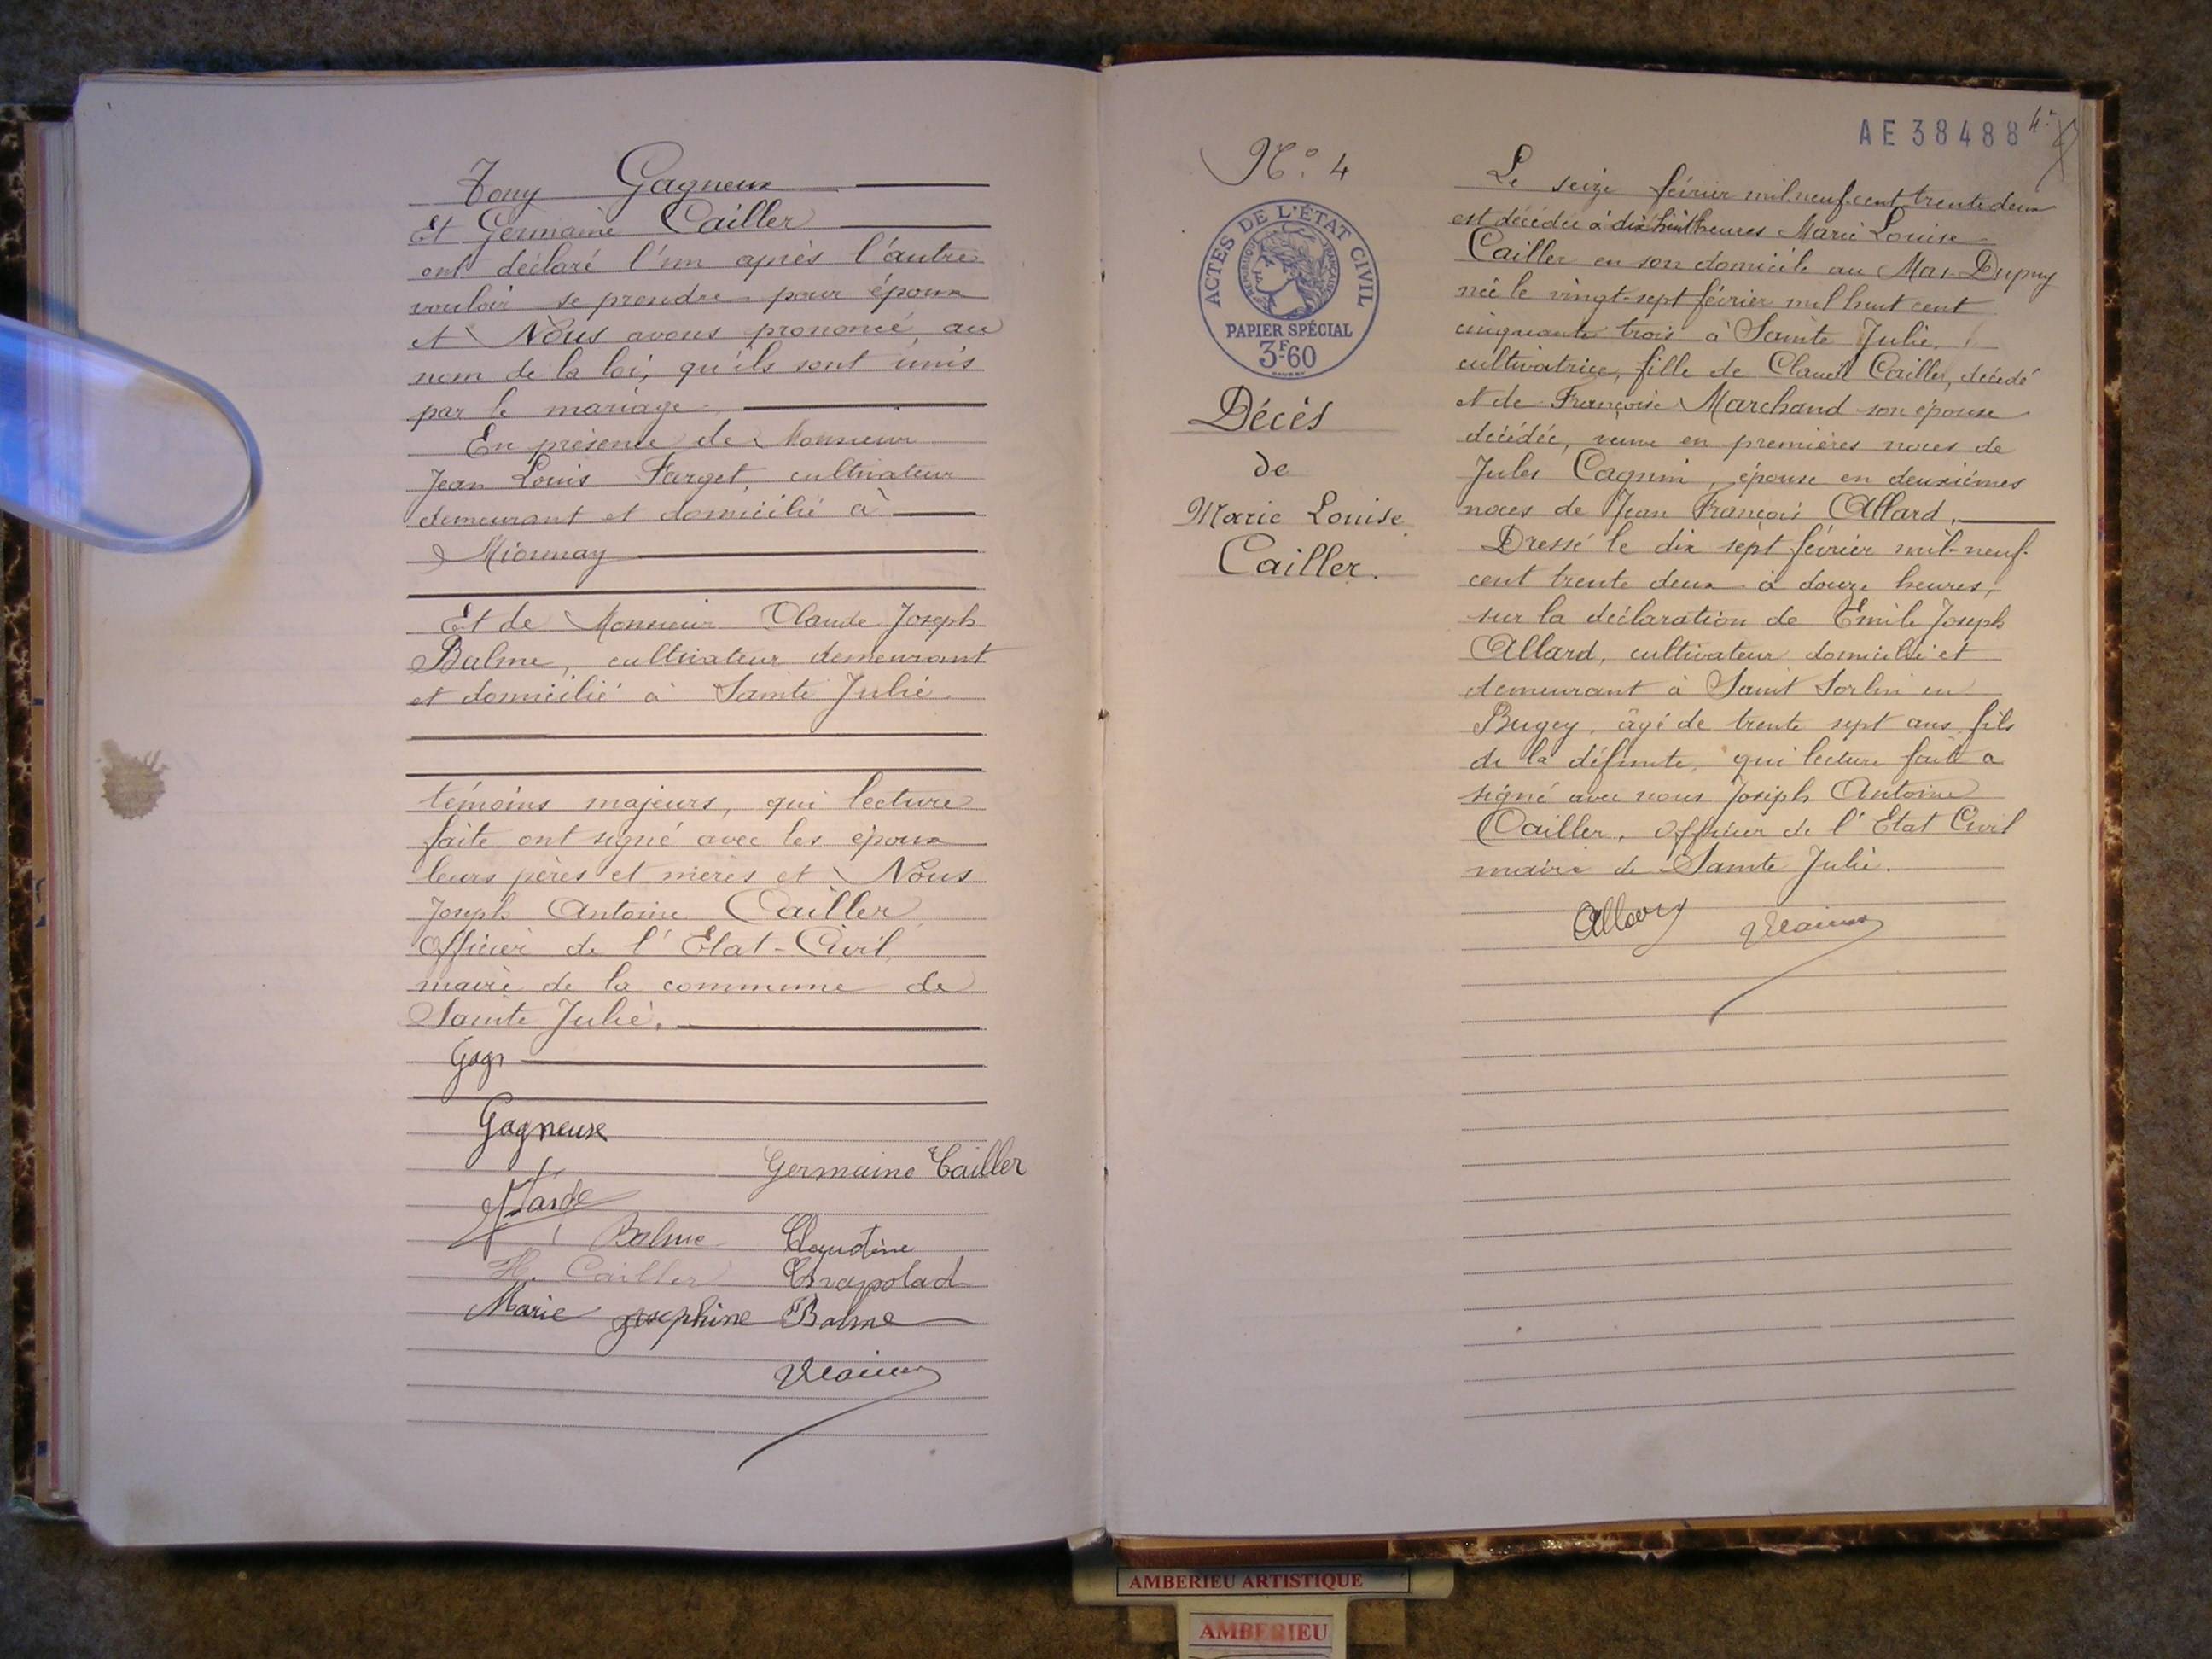 Tony Gagneux
Et Germaine Cailler
ont déclaré l'un après l'autre
vouloir se prendre pour époux
et Nous avons prononcé, au
nom de la loi, qu'ils sont unis
par le mariage.
En présence de Monsieur
Jean Louis Farget, cultivateur
demeurant et domicilié à
Mionnay
Et de Monsieur Claude Joseph
Balme, cultivateur demeurant
et domicilié à Sainte Julie.
témoins majeurs, qui lecture
faite ont signé avec les époux
leurs pères et mères et Nous
Joseph Antoine Cailler
Officier de l'Etat-Civil,
maire de la commune de
Sainte Julie.
Gagn
Gagneux
Germaine Cailler
Balme Claudine
H. Cailler Chapolad
Marie Josephine Balme
AE 38488
N° 4
ACTES DE L'ÉTAT CIVIL
RÉPUBLIQUE FRANÇAISE
PAPIER SPÉCIAL
3F60
Décès
de
Marie Louise
Cailler.
Le seize février mil neuf cent trente deux
est décédée à dix huit heures Marie Louise
Cailler en son domicile au Mas Dupuy
née le vingt-sept février mil huit cent
cinquante trois à Sainte Julie.
cultivatrice, fille de Claude Cailler, décédé
et de Françoise Marchand son épouse
décédée, veuve en premières noces de
Jules Cagnin, épouse en deuxièmes
noces de Jean François Allard.
Dressé le dix sept février mil-neuf-
cent trente deux à douze heures,
sur la déclaration de Emile Joseph
Allard, cultivateur domicilié et
demeurant à Saint Sorlin en
Bugey, âgé de trente sept ans, fils
de la défunte, qui lecture faite a
signé avec nous Joseph Antoine
Cailler, Officier de l'Etat Civil
maire de Sainte Julie.
Allard
AMBERIEU ARTISTIQUE
AMBERIEU